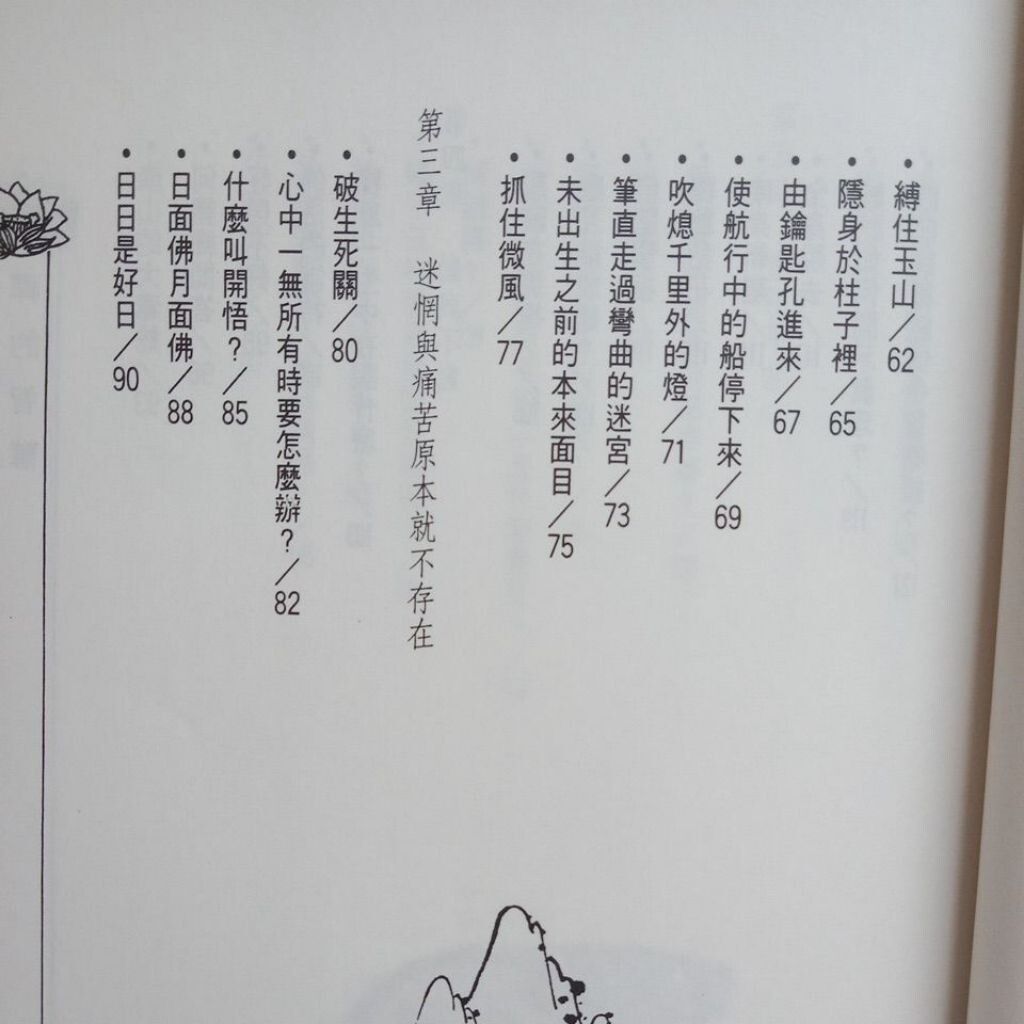 •縛住玉山／62
•隱身於柱子裡／65
•由鑰匙孔進來／67
•使航行中的船停下來／69
•吹熄千里外的燈／71
•筆直走過彎曲的迷宮／73
•未出生之前的本來面目／75
•抓住微風／77
第三章　迷惘與痛苦原本就不存在
•破生死關／80
•心中一無所有時要怎麼辦？／82
•什麼叫開悟？／85
•日面佛月面佛／88
•日日是好日／90